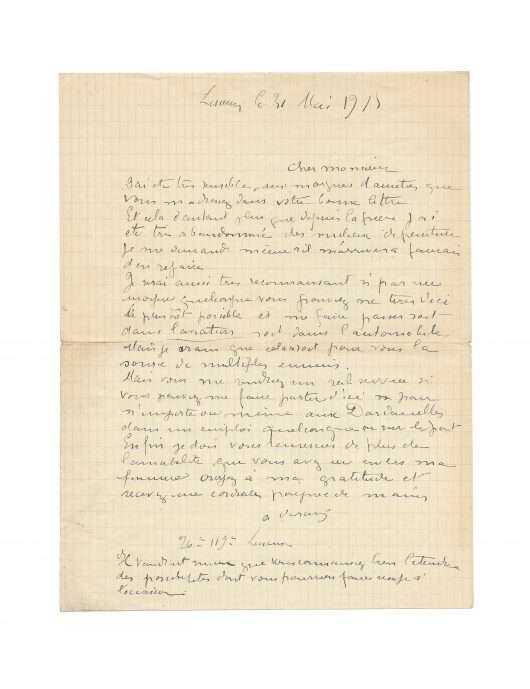 Lisieux le 31 Mai 1915
cher monsieur
J'ai été très sensible aux marques d'amitiés que
vous m'adressez dans votre bonne lettre
Et cela d'autant plus que depuis la guerre j'ai
été très abandonné des milieux de peinture
Je me demande même s'il m'arrivera jamais
d'en refaire
Je serai aussi très reconnaissant si par une
moyen quelconque vous pouvez me tirer d'ici
le plutôt possible et me faire passer soit
dans l'aviation soit dans l'automobile
Mais je crains que cela soit pour vous la
source de multiples ennuis.
Mais vous me rendrez un réel service si
vous pouvez me faire partir d'ici pour
n'importe où même aux Dardanelles
dans un emploi quelconque ou sur le front
Enfin je dois vous remercier de plus de
l'amabilité que vous avez eu envers ma
femme croyez à ma gratitude et
recevez une cordiale poignée de mains
a Derain
Lisieux
Il vaudrait mieux que vous connaissiez bien l'étendue
des possibilités dont vous pourrions faire usage à
l'occasion